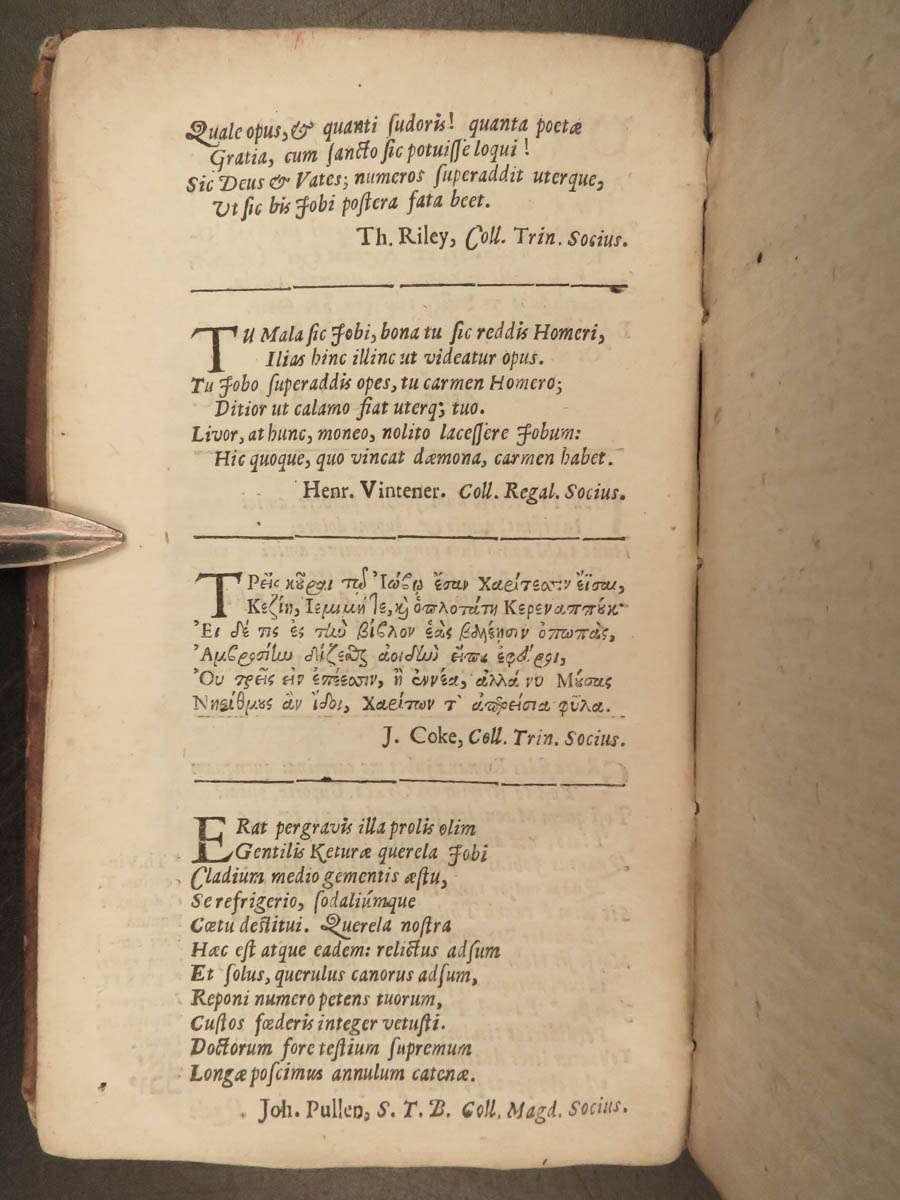 Quale opus, & quanti ſudoris! quanta poetæ
Gratia, cum ſancto ſic potuiſſe loqui!
Sic Deus & Vates; numeros ſuperaddit uterque,
Ut ſic bis Jobi poſtera fata beet.
Th. Riley, Coll. Trin. Socius.
TU Mala ſic Jobi, bona tu ſic reddis Homeri,
Ilias hinc illinc ut videatur opus.
Tu Jobo ſuperaddis opes, tu carmen Homero;
Ditior ut calamo fiat uterq; tuo.
Livor, at hunc, moneo, nolito laceſſere Jobum:
Hic quoque, quo vincat dæmona, carmen habet.
Henr. Vintener. Coll. Regal. Socius.
ΤΡεῖς κοῦραι τῷ Ἰώβῳ ἔσαν Χαρίτεσσιν ἔϊσαι,
Κεζίη, Ιεμιμή τε, καὶ ὁπλοτάτη Κερεναππύκ·
Ἐι δέ τις ἐς τίω βίβλον ἑὰς βάλῃσιν ὀπωπὰς,
Ἀμβροσίίω δίζεσθαι ἀοιδίω
Ὀυ τρεῖς εἰν ἐπέεσσιν, ἢ ἐννέα, ἀλλά νυ Μούσας
Νηρίθμους ἂν ἴδοι, Χαρίτων τ' ἀπερείσια φῦλα.
J. Coke, Coll. Trin. Socius.
ERat pergravis illa prolis olim
Gentilis Keturæ querela Jobi
Cladium medio gementis æſtu,
Se refrigerio, ſodaliúmque
Cœtu deſtitui. Querela noſtra
Hæc eſt atque eadem: relictus adſum
Et ſolus, querulus canorus adſum,
Reponi numero petens tuorum,
Cuſtos fœderis integer vetuſti.
Doctorum fore teſtium ſupremum
Longæ poſcimus annulum catenæ.
Joh. Pullen, S. T. B. Coll. Magd. Socius.